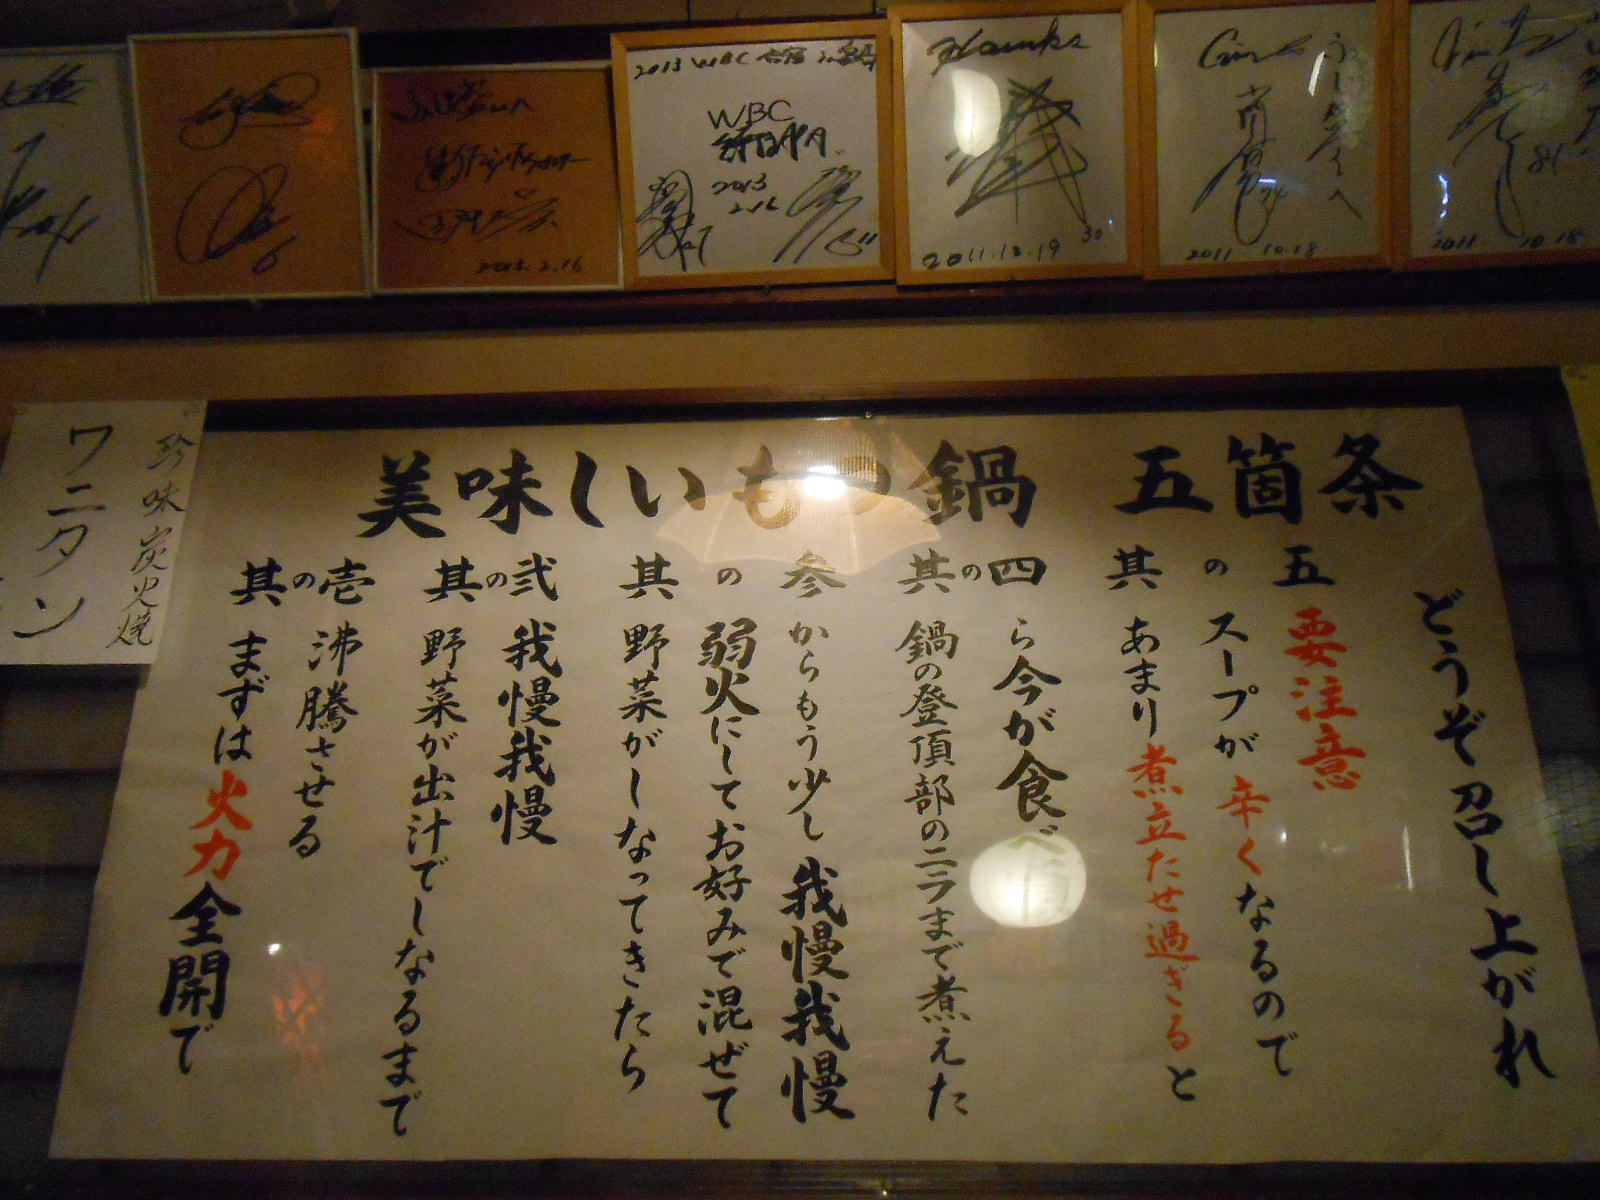 2013 WBC
WBC
2013
2.16
2013.2.16
Hawks
30
2011.12.19
2011 10.18
81
2011 10.18
珍味炭火焼
ワニタン
美味しいもつ鍋 五箇条
其の壱
まずは火力全開で
沸騰させる
其の弐
野菜が出汁でしなるまで
我慢我慢
其の参
野菜がしなってきたら
弱火にしてお好みで混ぜて
からもう少し我慢我慢
其の四
鍋の登頂部のニラまで煮えた
ら今が食べ頃
其の五
あまり煮立たせ過ぎると
スープが辛くなるので
要注意
どうぞ召し上がれ